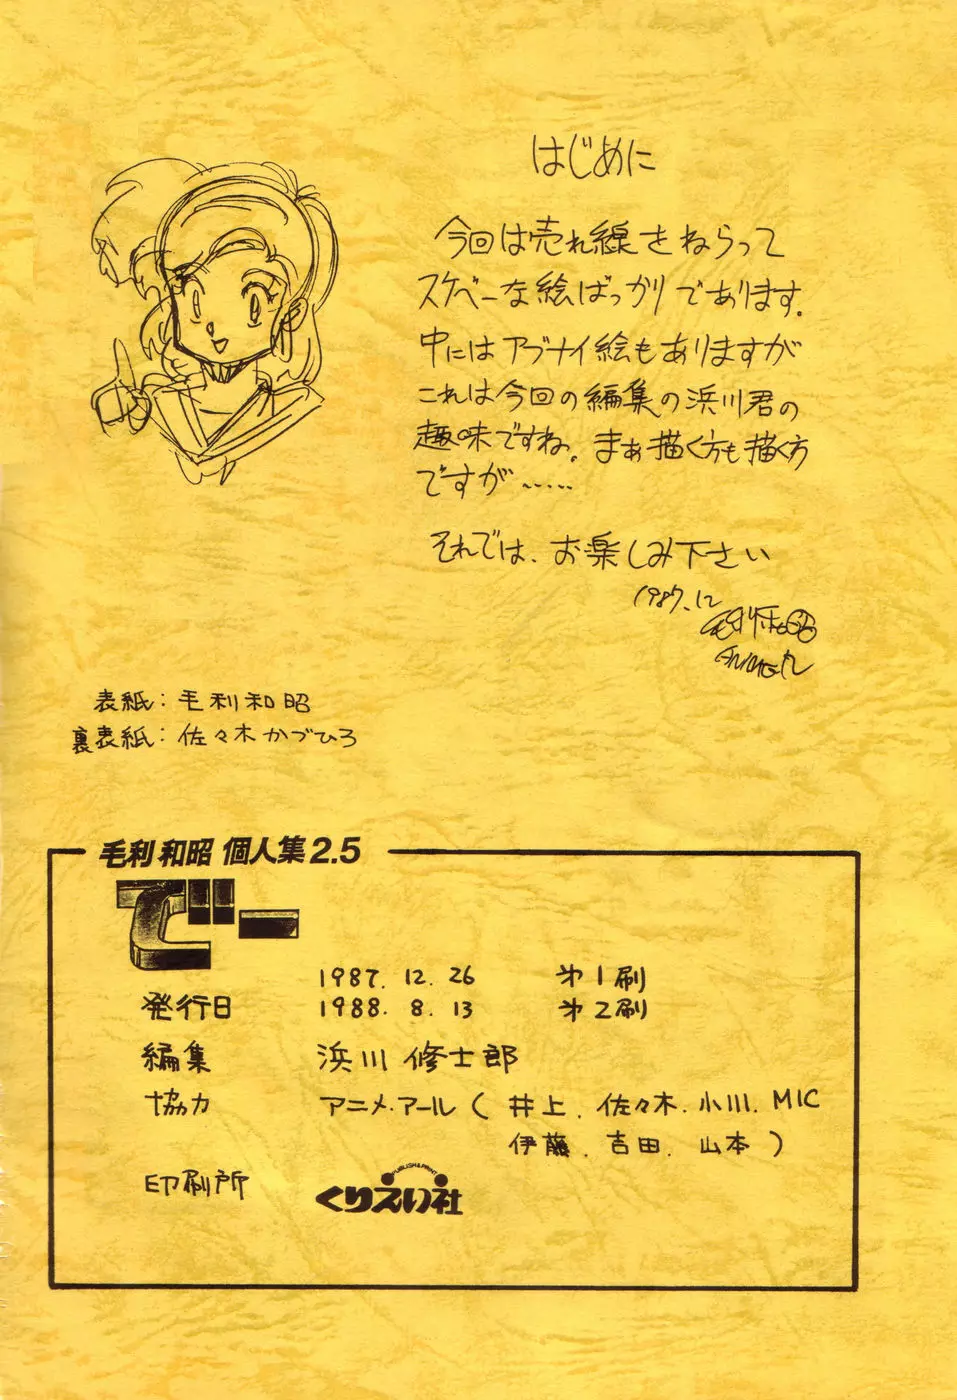 はじめに
今回は売れ線をねらって
スケベーな絵ばっかりであります。
中にはアブナイ絵もありますが
これは今回の編集の浜川君の
趣味ですね。まぁ描く方も描く方
ですが……
それでは、お楽しみ下さい
1987.12
毛利和昭
表紙：毛利和昭
裏表紙：佐々木かづひろ
毛利和昭 個人集2.5
でー
1987. 12. 26 第1刷
発行日 1988. 8. 13 第2刷
編集 浜川修士郎
協力 アニメ・アール（井上. 佐々木. 小川. MIC
伊藤. 吉田. 山本）
PUBLISH&PRINT
印刷所 くりえい社